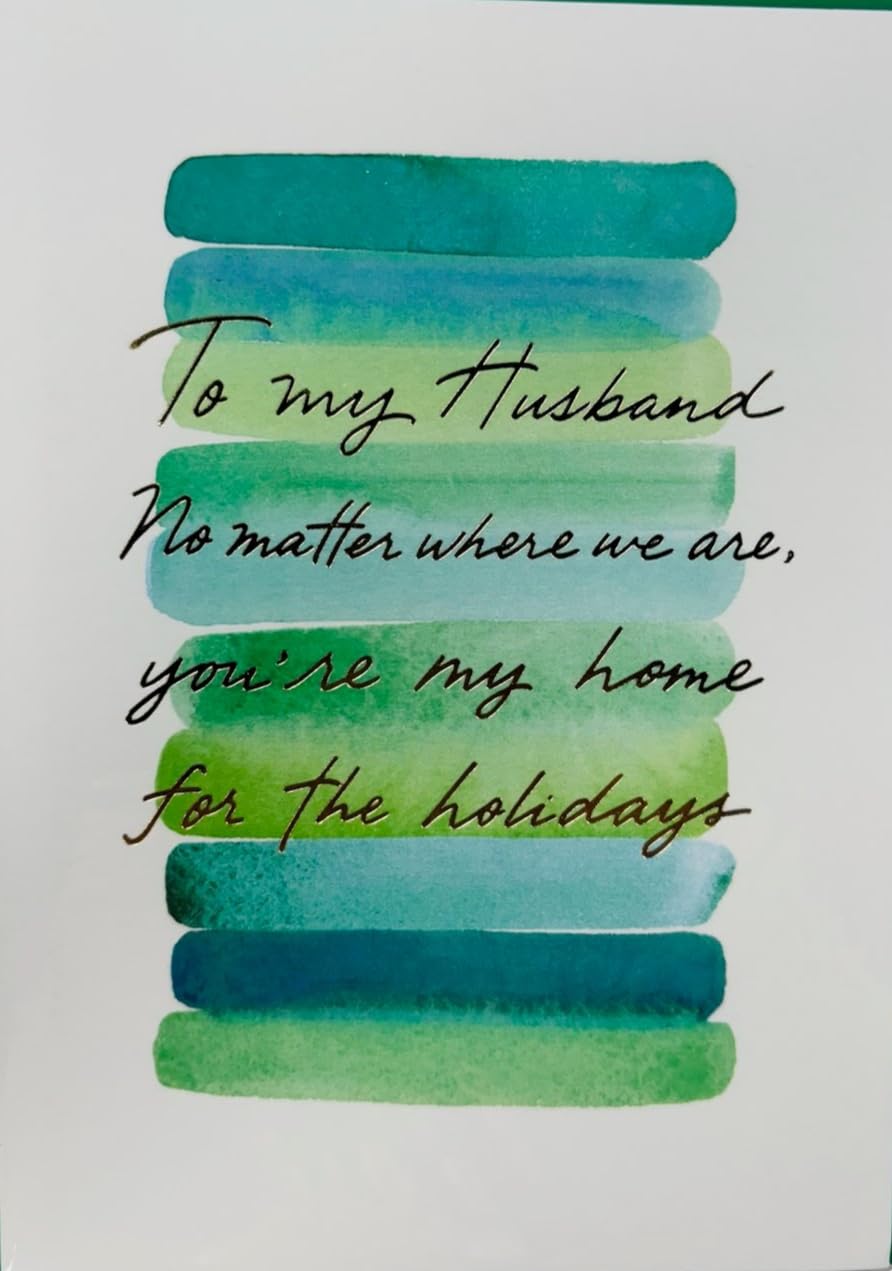 To my Husband
No matter where we are,
you're my home
for the holidays